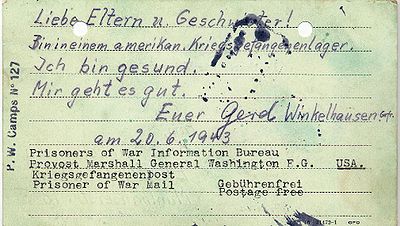 Liebe Eltern u. Geschwister!
Bin in einem amerikan. Kriegsgefangenenlager.
Ich bin gesund.
Mir geht es gut.
Euer Gerd Winkelhausen
am 20.6.1943
Prisoners of War Information Bureau
Provost Marshall General Washington F.G. USA.
Kriegsgefangenenpost
Prisoner of War Mail Gebührenfrei
Postage free
P. W. Camps Nº 127